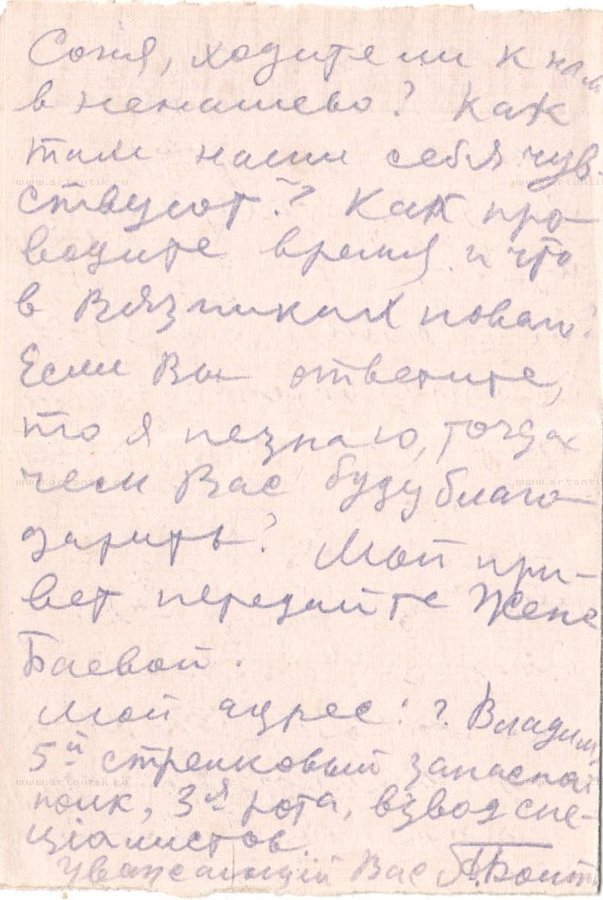 Соня, ходите ли к нам
в Ненашево? Как
там наши себя чув-
ствуют? Как про-
водите время и что
в Вязниках нового?
Если Вы ответите,
то я незнаю, тогда
чем Вас буду благо-
дарить? Мой при-
вет передайте Жене
Баевой.
Мой адрес: г. Владим
5й стрелковый запасной
полк, 3я рота, взвод спе-
циалистов.
Уважающий Вас